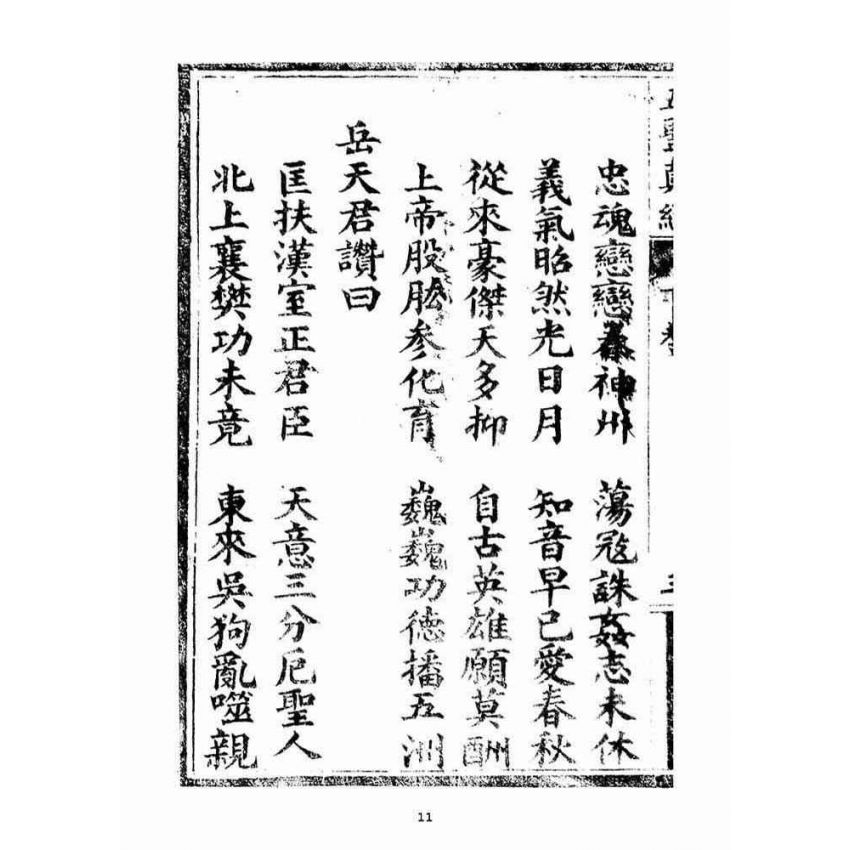 忠魂戀戀神州 蕩寇誅姦志未休
義氣昭然光日月 知音早已愛春秋
從來豪傑天多抑 自古英雄願莫酬
上帝股肱参化育 巍巍功德播五洲
岳天君讚曰
匡扶漢室正君臣 天意三分厄聖人
北上襄樊功未竟 東來吳狗亂噬親
11